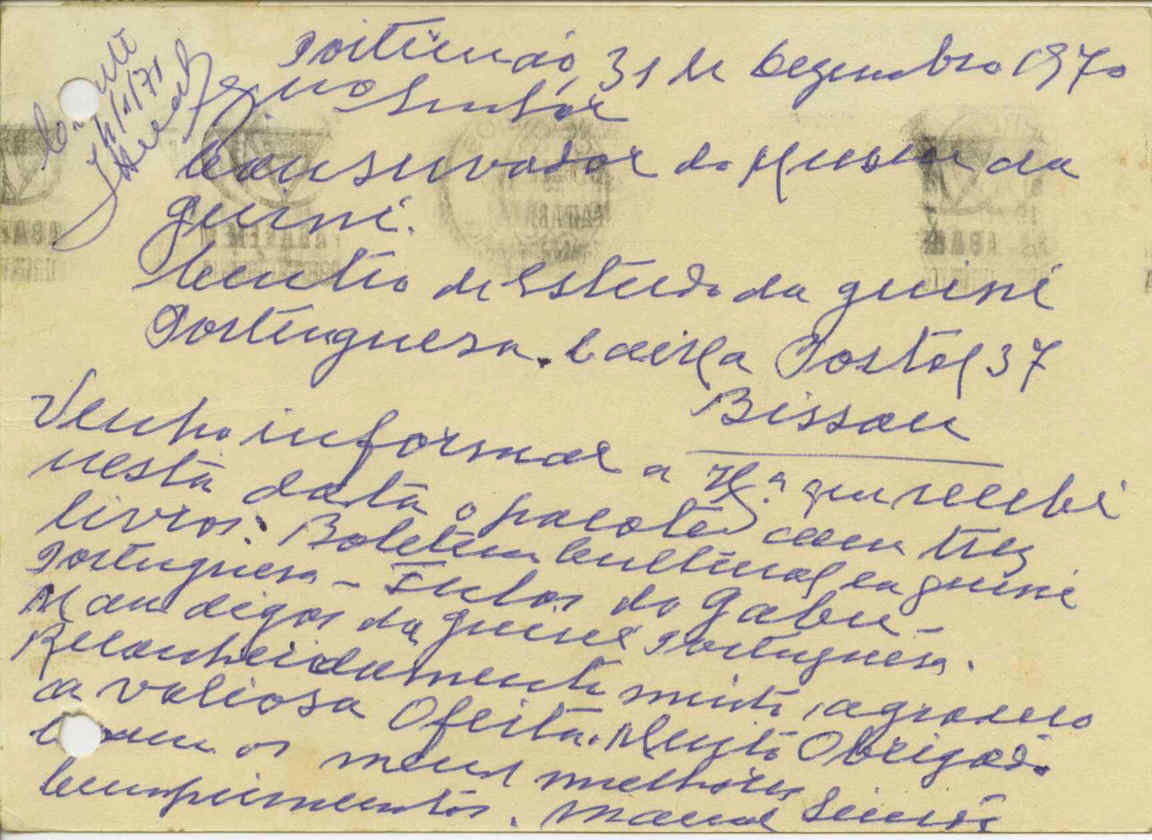 Portimão, 31 de Dezembro 1970
Exmo Senhor
Conservador do Museu da
Guiné.
Centro de Estudo da Guiné
Portuguesa. Caixa Postal 37
Bissau
Venho informar a Vª que recebi
nesta data o pacote com tres
livros: Boletim Cultural da Guiné
Portuguesa - Fulas do Gabu -
Mandigas da Guiné Portuguesa.
Reconhecidamente muito agradeço
a valiosa Oferta. Muito Obrigado.
Com os meus melhores
Cumprimentos. Manuel